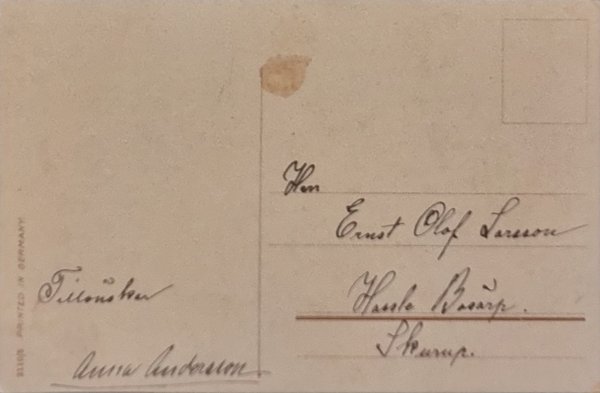 PRINTED IN GERMANY
Tillönskar
Anna Andersson
Herr
Ernst Olof Larsson
Hassle Bösarp.
Skurup.